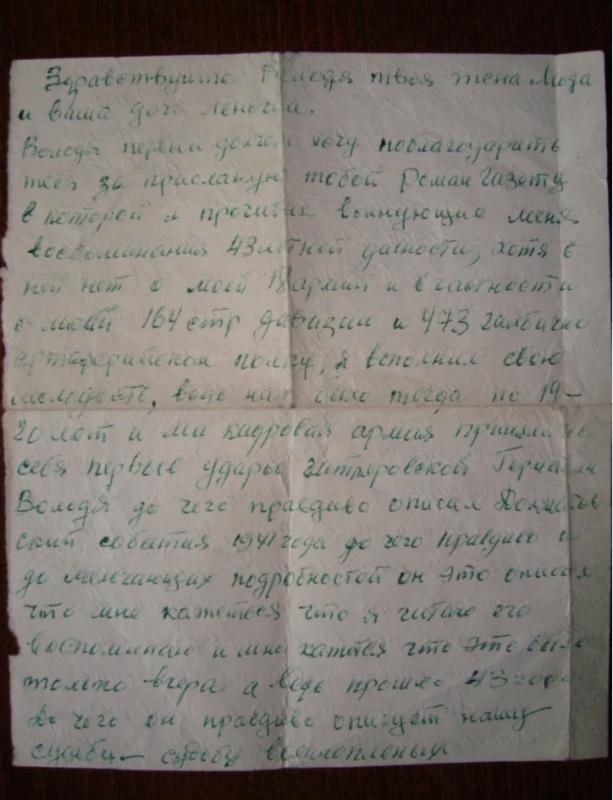 Здравствуйте Володя твоя жена Люда
и ваша дочь Леночка.
Володя первым долгом хочу поблагодарить
тебя за присланую тобой Роман Газету
в которой я прочитал волнующие меня
воспоминания 43 летней давности, хотя в
ней нет о моей 18 армии и в частности
о моей 164 стр дивизии и 473
полку, я вспомнил свою
ведь нам было тогда по 19-
20 лет и мы кадровая армия приняла на
себя первые удары гитлеровской Германии
Володя до чего правдиво описал
события 1941 года до чего правдиво и
до мельчающих подробностей он это описал
что мне кажеться что я читаю его
воспоминаю и мне кажется что это было
только вчера а ведь прошло 43 года
До чего он правдиво опишет нашу
судьбу — судьбу военнопленых